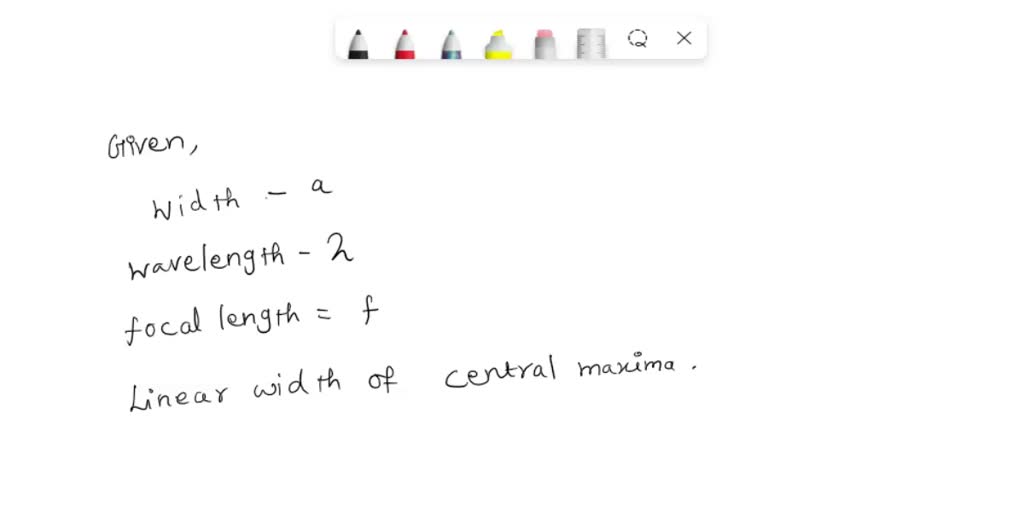 Given,
Width - a
Wavelength - λ
focal length = f
Linear width of central maxima.